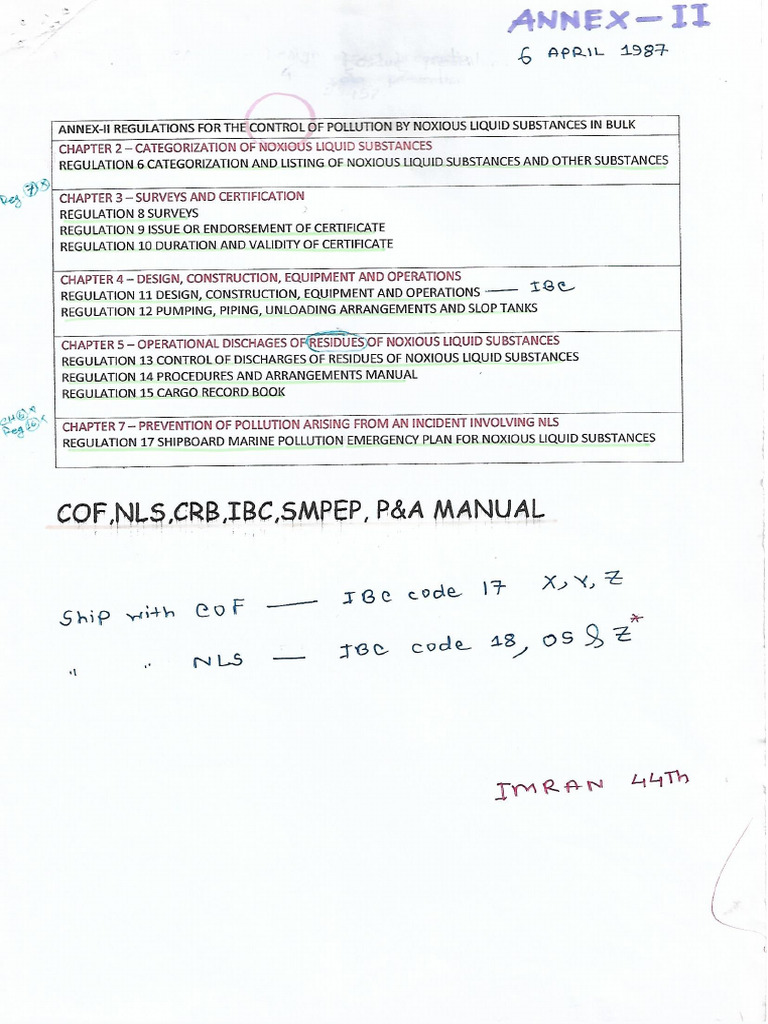 ANNEX-II
6 APRIL 1987
ANNEX-II REGULATIONS FOR THE CONTROL OF POLLUTION BY NOXIOUS LIQUID SUBSTANCES IN BULK
CHAPTER 2 – CATEGORIZATION OF NOXIOUS LIQUID SUBSTANCES
REGULATION 6 CATEGORIZATION AND LISTING OF NOXIOUS LIQUID SUBSTANCES AND OTHER SUBSTANCES
Reg 7 x
CHAPTER 3 – SURVEYS AND CERTIFICATION
REGULATION 8 SURVEYS
REGULATION 9 ISSUE OR ENDORSEMENT OF CERTIFICATE
REGULATION 10 DURATION AND VALIDITY OF CERTIFICATE
CHAPTER 4 – DESIGN, CONSTRUCTION, EQUIPMENT AND OPERATIONS
REGULATION 11 DESIGN, CONSTRUCTION, EQUIPMENT AND OPERATIONS — IBC
REGULATION 12 PUMPING, PIPING, UNLOADING ARRANGEMENTS AND SLOP TANKS
CHAPTER 5 – OPERATIONAL DISCHAGES OF RESIDUES OF NOXIOUS LIQUID SUBSTANCES
REGULATION 13 CONTROL OF DISCHARGES OF RESIDUES OF NOXIOUS LIQUID SUBSTANCES
REGULATION 14 PROCEDURES AND ARRANGEMENTS MANUAL
REGULATION 15 CARGO RECORD BOOK
CH 6 x
Reg 16 x
CHAPTER 7 – PREVENTION OF POLLUTION ARISING FROM AN INCIDENT INVOLVING NLS
REGULATION 17 SHIPBOARD MARINE POLLUTION EMERGENCY PLAN FOR NOXIOUS LIQUID SUBSTANCES
COF,NLS,CRB,IBC,SMPEP, P&A MANUAL
Ship with COF — IBC code 17 X, Y, Z
" " NLS — IBC code 18, OS & Z*
IMRAN 44Th